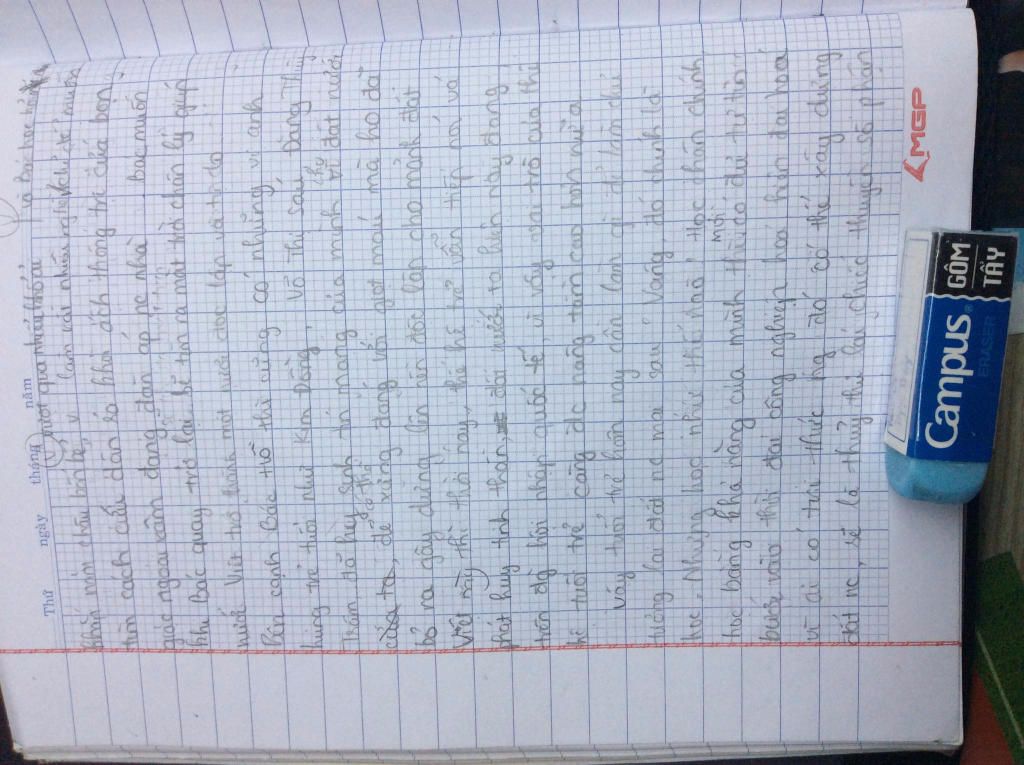 Thứ ngày tháng năm
trượt qua nhiều thử thách và Bác học hỏi
khắp năm châu bốn bể, làm vài nhiều nghề khác để muốn
tìm cách cứu dân ra khỏi ách thống trị của bọn
giặc ngoại xâm đang đàn áp nc nhà bác muốn
khi Bác quay trở lại sẽ tìm ra mặt trời chân lý giúp
nước Việt trở thành một nước độc lập và tự do
Bên cạnh Bác Hồ thì cũng có những vị anh
hùng trẻ tuổi như Kim Đồng, Võ Thị Sáu, Đặng Thùy
Trâm đã hy sinh tính mạng của mình vì đất nước
để có thể xứng đáng với giọt máu mà họ đã
bỏ ra gây dựng lên nền độc lập cho mảnh đất
Việt này thì thời nay, thế hệ trẻ vẫn tiếp nối và
phát huy tinh thần, đất nước ta hiện nay đang
tiến độ hội nhập quốc tế, vì vậy vai trò của thế
hệ tuổi trẻ càng đc nâng tầm cao hơn nữa
Vậy tuổi trẻ hôm nay cần làm gì để làm chủ
tương lai đất nc mai sau. Vâng, đó chính là
học. Nhưng học như thế nào, học chân chính
học bằng khả năng của mình thì mới có đủ tự tin
bước vào thời đại công nghiệp hoá hiện đại hoá
vì ai có tri thức ng đó có thể xây dựng
đất nc, sẽ là thuỷ thủ lái chiếc thuyền số phận
MGP
Campus
ERASER
GÔM
TẨY